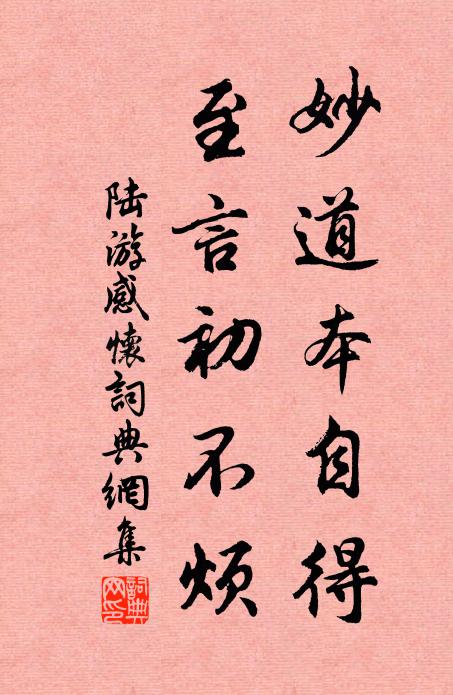 妙道本自得
至言初不煩
陆游感懷詞典網集
詞典網印